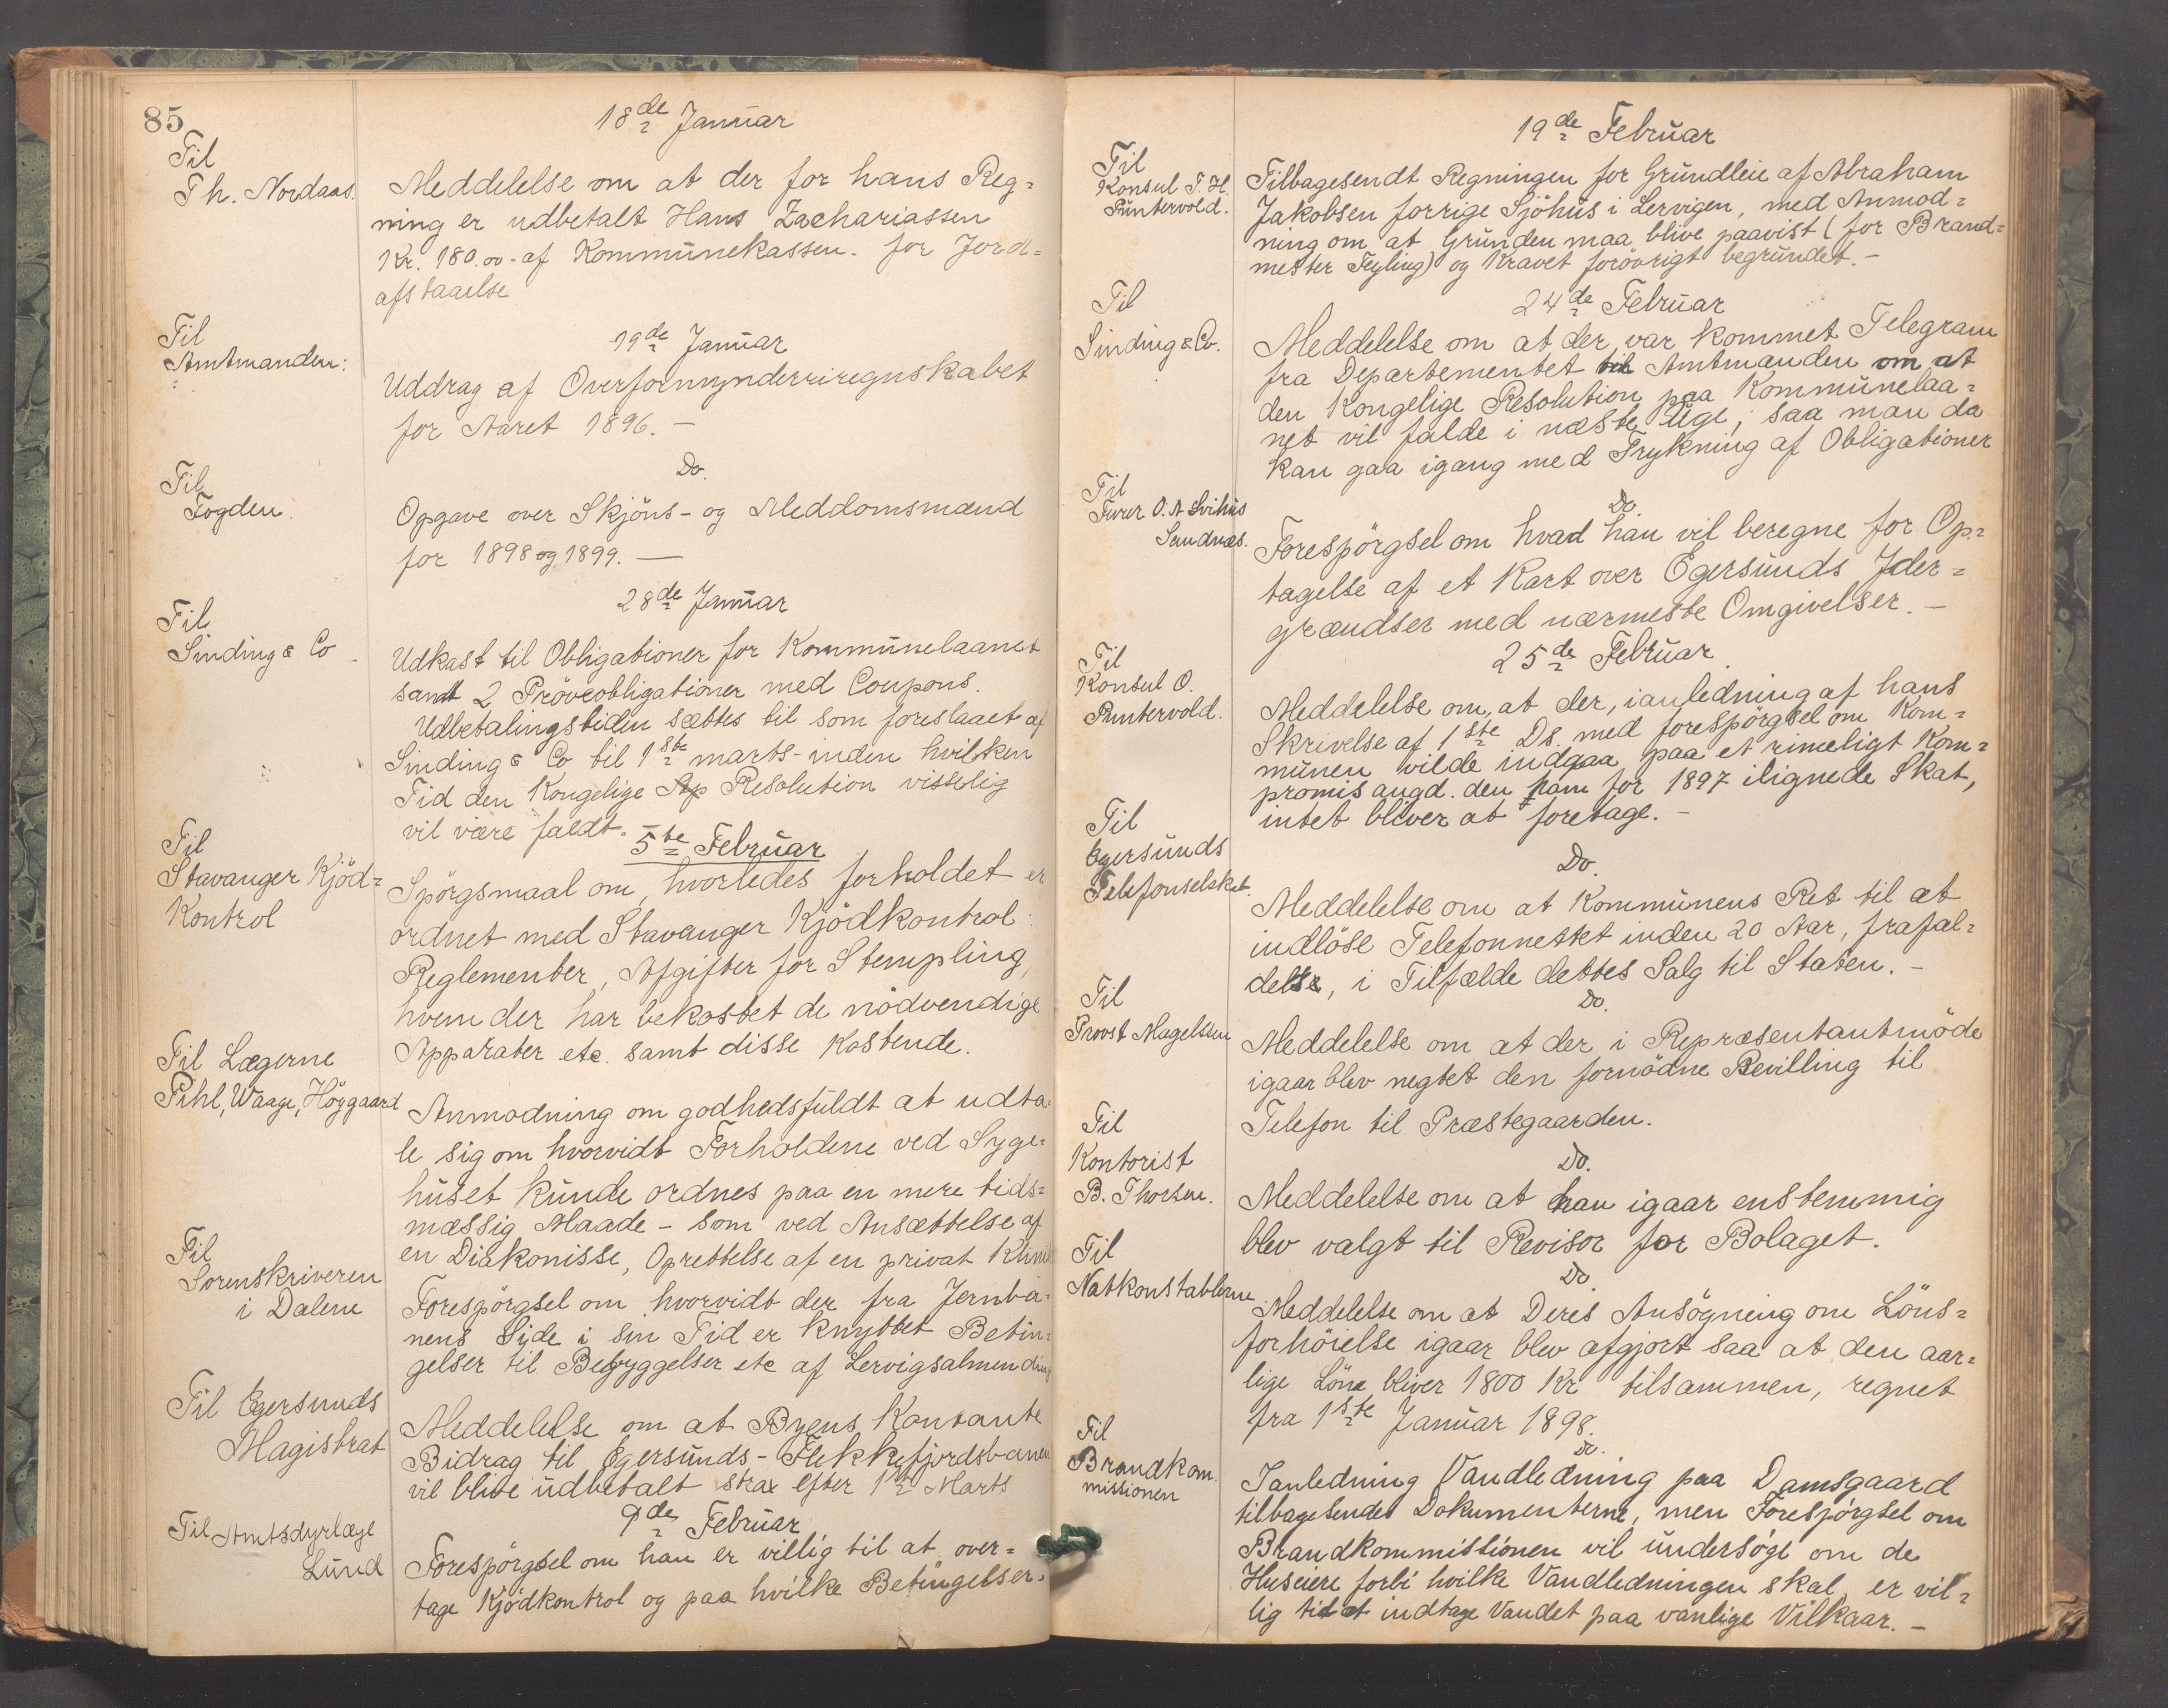 85
18de Januar
Til
Th. Nordaas.
Meddelelse om at der for hans Reg=
ning er udbetalt Hans Zachariassen
Kr. 180.00 - af Kommunekassen. for Jord=
afstaaelse
19de Januar
Til
Amtmanden:
Uddrag af Overformynderiregnskabet
for Aaret 1896. -
Do.
Til
Fogden.
Opgave over Skjöns- og Meddomsmænd
for 1898 og 1899. -
28de Januar
Til
Sinding & Co
Udkast til Obligationer for Kommunelaanet
samt 2 Pröveobligationer med Coupons.
Udbetalingstiden sættes til som foreslaaet af
Sinding & Co til 1ste marts - inden hvilken
Tid den Kongelige Resolution visselig
vil være faldt. -
5te Februar
Til
Stavanger Kjöd=
Kontrol
Spörgsmaal om, hvorledes forholdet er
ordnet med Stavanger Kjödkontrol:
Reglementer, Afgifter for Stempling,
hvem der har bekostet de nödvendige
Apparater etc. samt disse Kostende.
Til Lægerne
Pihl, Waage, Höygaard
Anmodning om godhedsfuldt at udta=
le sig om hvorvidt Forholdene ved Syge=
huset kunde ordnes paa en mere tids=
mæssig Maade - som ved Ansættelse af
en Diakonisse, Oprettelse af en privat Klinik
Til
Sorenskriveren
i Dalene
Forespörgsel om hvorvidt der fra Jernba=
nens Side i sin Tid er knyttet Betin=
gelser til Bebyggelser etc af Lervigsalmending
Til Egersunds
Magistrat
Meddelelse om at Byens Kontante
Bidrag til Egersunds - Flekkefjordsbanen
vil blive udbetalt strax efter 1ste Marts
9de Februar
Til Amtsdyrlæge
Lund
Forespörgsel om han er villig til at over=
tage Kjödkontrol og paa hvilke Betingelser.
19de Februar
Til
Konsul T. H.
Puntervold.
Tilbagesendt Regningen for Grundleie af Abraham
Jakobsen forrige Sjöhus i Lervigen, med Anmod=
ning om at Grunden maa blive paavist (for Brand=
mester Feyling) og Kravet forövrigt begrundet. -
24de Februar
Til
Sinding & Co.
Meddelelse om at der var kommet Telegram
fra Departementet til Amtmanden om at
den Kongelige Resolution paa Kommunelaa=
net vil falde i næste Uge, saa man da
kan gaa igang med Trykning af Obligationer
Do.
Til
Furer O. A Svihus
Sandnæs.
Forespörgsel om hvad han vil beregne for Op=
tagelse af et Kart over Egersunds Yder=
grændser med nærmeste Omgivelser. -
25de Februar
Til
Konsul O.
Puntervold.
Meddelelse om, at der, i anledning af hans
Skrivelse af 1ste Ds. med forespörgsel om Kom=
munen vilde indgaa paa et rimeligt Kom=
promis angd. den ham for 1897 ilignede Skat,
intet bliver at foretage. -
Do.
Til
Egersunds
Telefonselskab.
Meddelelse om at Kommunens Ret til at
indlöse Telefonnettet inden 20 Aar, frafal=
delse, i Tilfælde dettes Salg til Staten. -
Do.
Til
Provst Magelssen
Meddelelse om at der i Repræsentantmöde
igaar blev negtet den fornödne Bevilling til
Telefon til Præstegaarden.
Do.
Til
Kontorist
B. Thorsen.
Meddelelse om at han igaar enstemmig
blev valgt til Revisor for Bolaget.
Do
Til
Natkonstablerne
Meddelelse om at Deres Ansögning om Löns=
forhöielse igaar blev afgjort saa at den aar=
lige Lön bliver 1800 Kr tilsammen, regnet
fra 1ste Januar 1898.
Do.
Til
Brandkom.
missionen
I anledning Vandledning paa Damsgaard
tilbagesendes Dokumenterne, men Forespörgsel om
Brandkommissionen vil undersöge om de
Huseiere forbi hvilke Vandledningen skal, er vil=
lig til at indtage Vandet paa vanlige Vilkaar. -